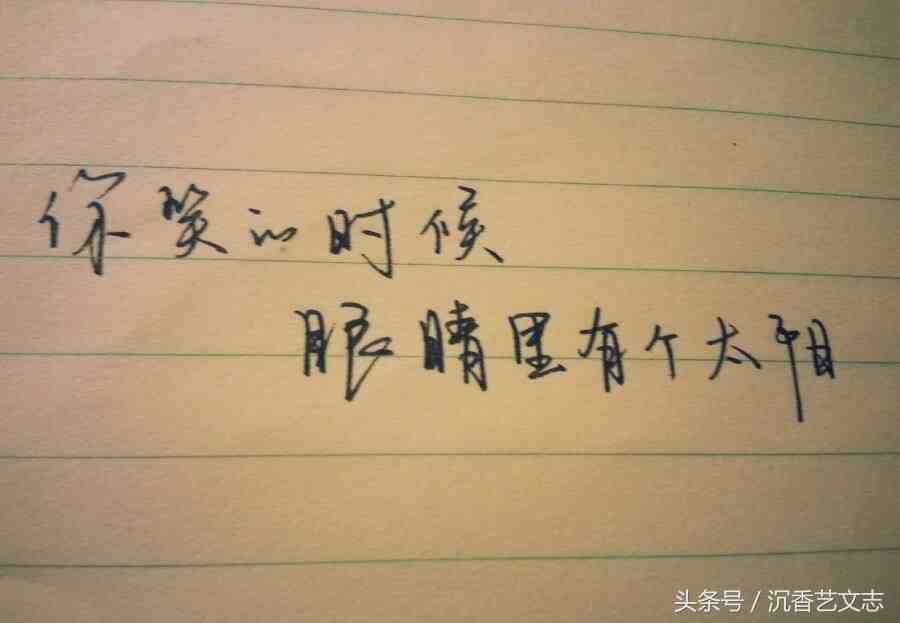 你笑的时候
眼睛里有个太阳
头条号 / 沉香艺文志